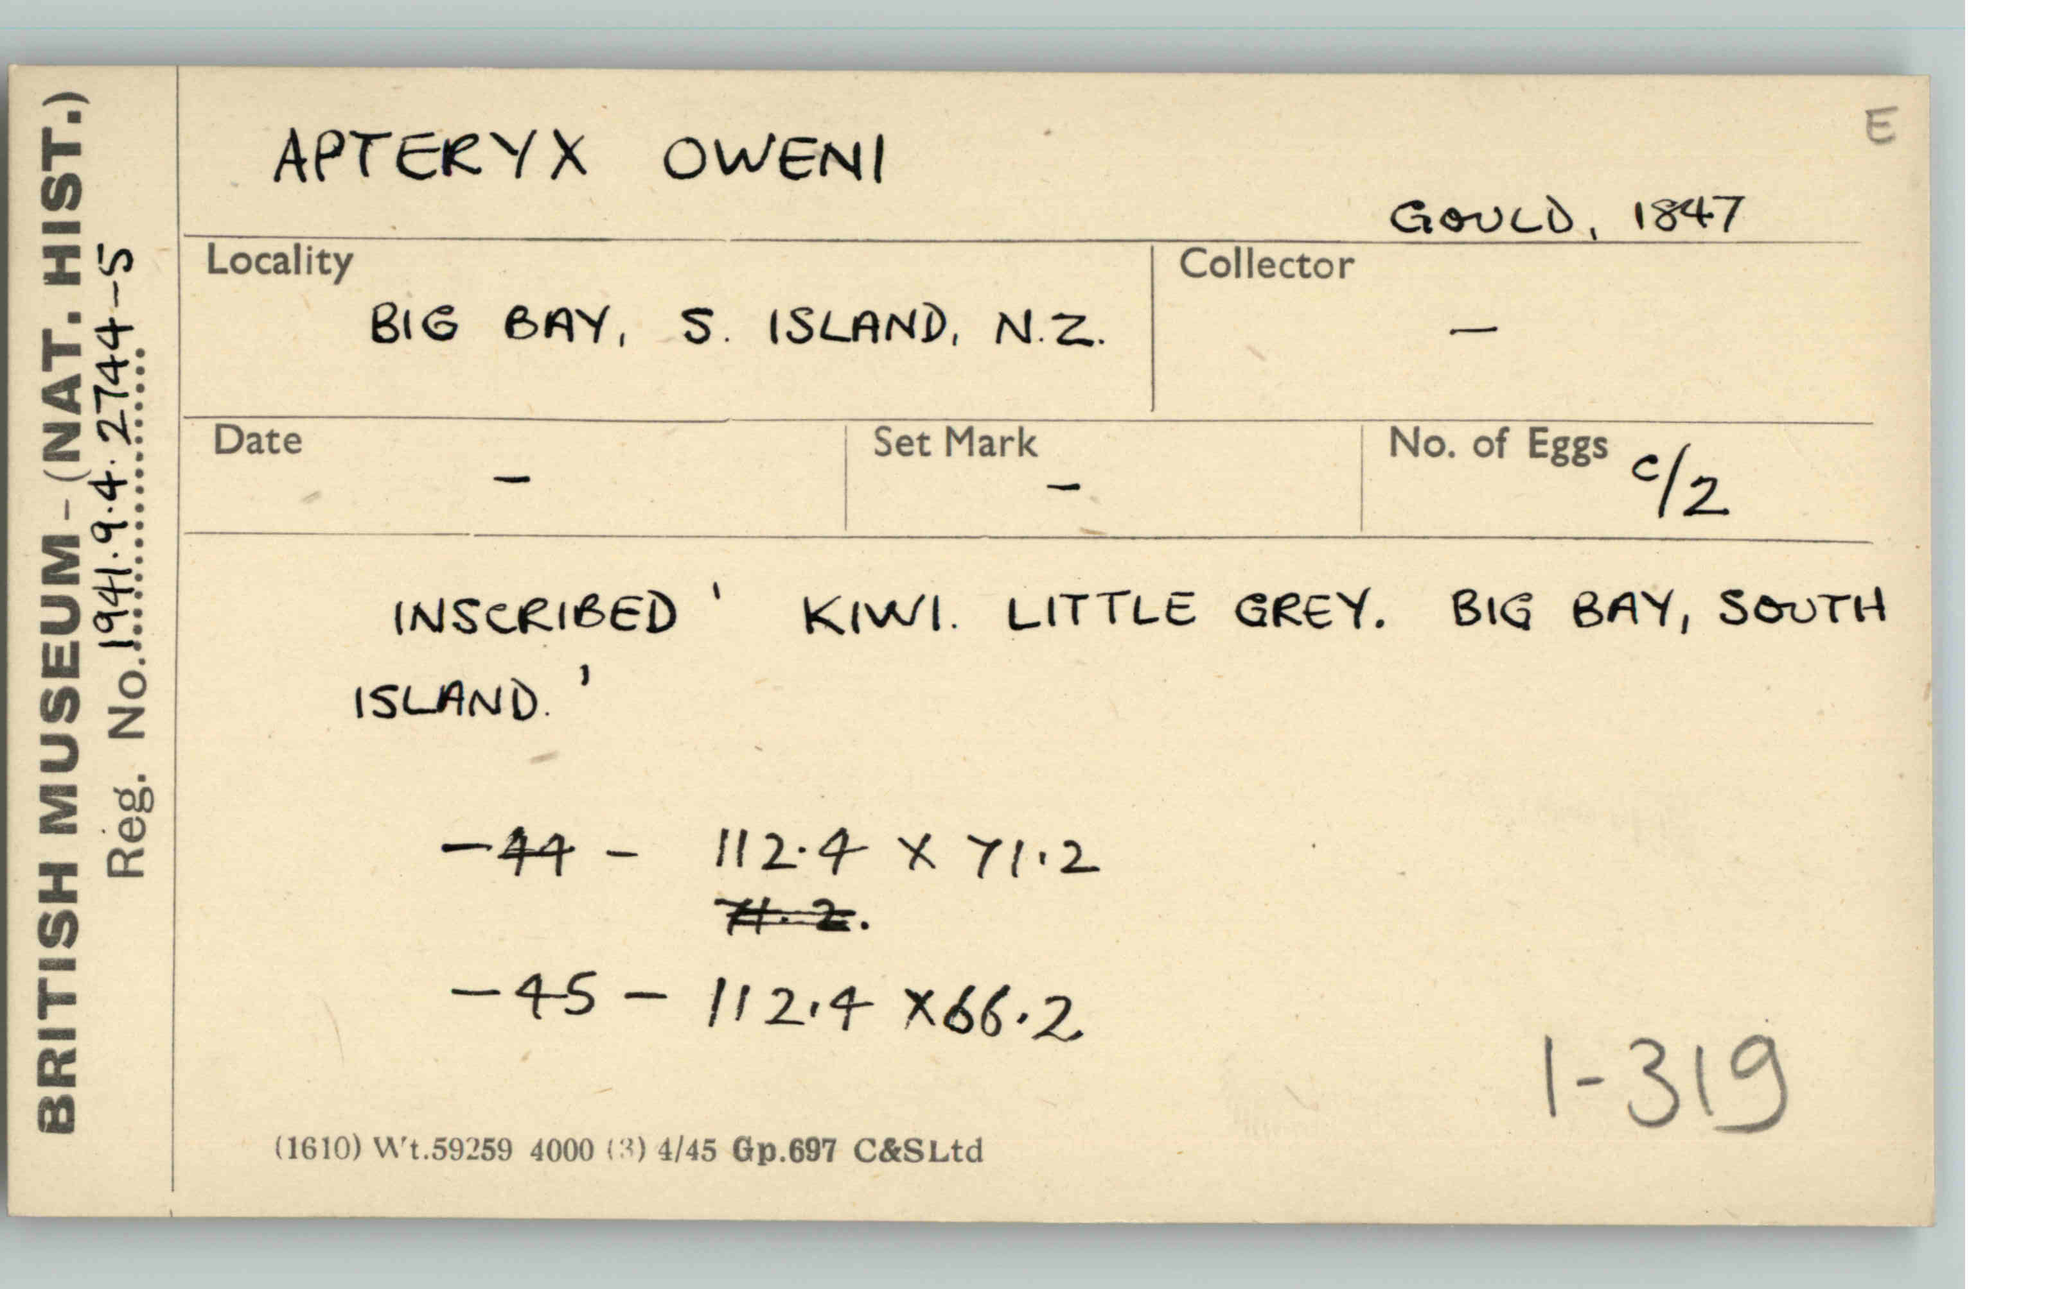 BRITISH MUSEUM - (NAT. HIST.)
Reg. No. 1941.9.4.2744-5
E
APTERYX OWENI
GOULD, 1847
Locality
BIG BAY, S. ISLAND, N.Z.
Collector
—
Date
-
Set Mark
-
No. of Eggs c/2
INSCRIBED ' KIWI. LITTLE GREY. BIG BAY, SOUTH
ISLAND.'
-44 - 112.4 X 71.2
71.2.
-45 - 112.4 X 66.2
1-319
(1610) Wt.59259 4000 (3) 4/45 Gp.697 C&S Ltd